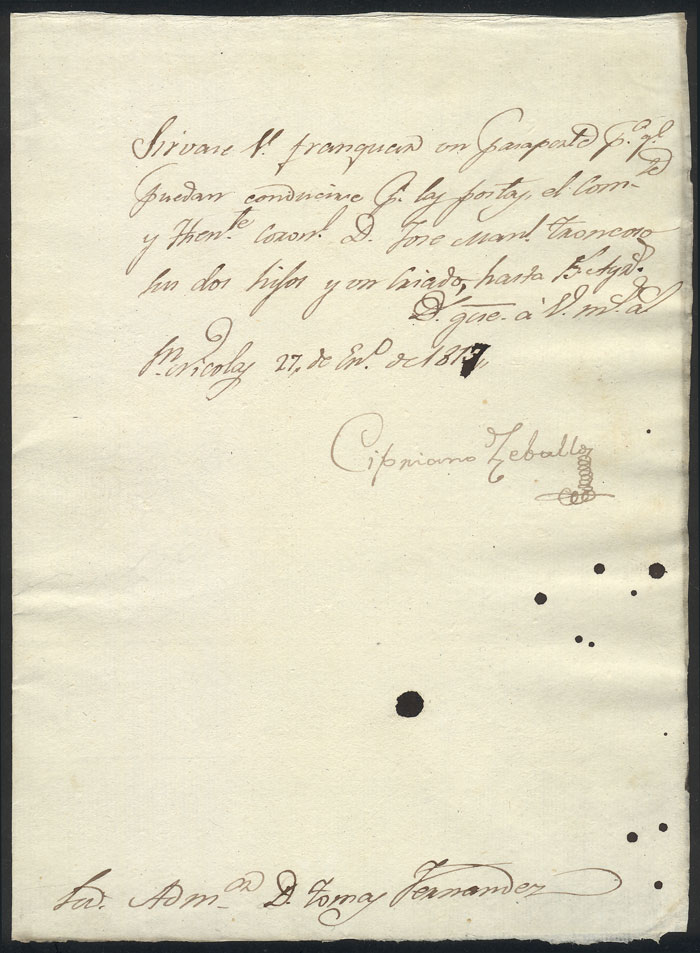 Sirvase V. franquear un pasaporte p.a q.e
puedan conducirse p.r las postas, el Com.te
y Then.te Coron.l D. Jose Man.l Troncoso
sus dos hijos y un criado, hasta B.s Ay.s
D.s gue. á V. m.s a.s
S.n Nicolas 27, de En.o de 1817,,
Cipriano Zeballos
Sor. Adm.or D. Tomas Fernandez